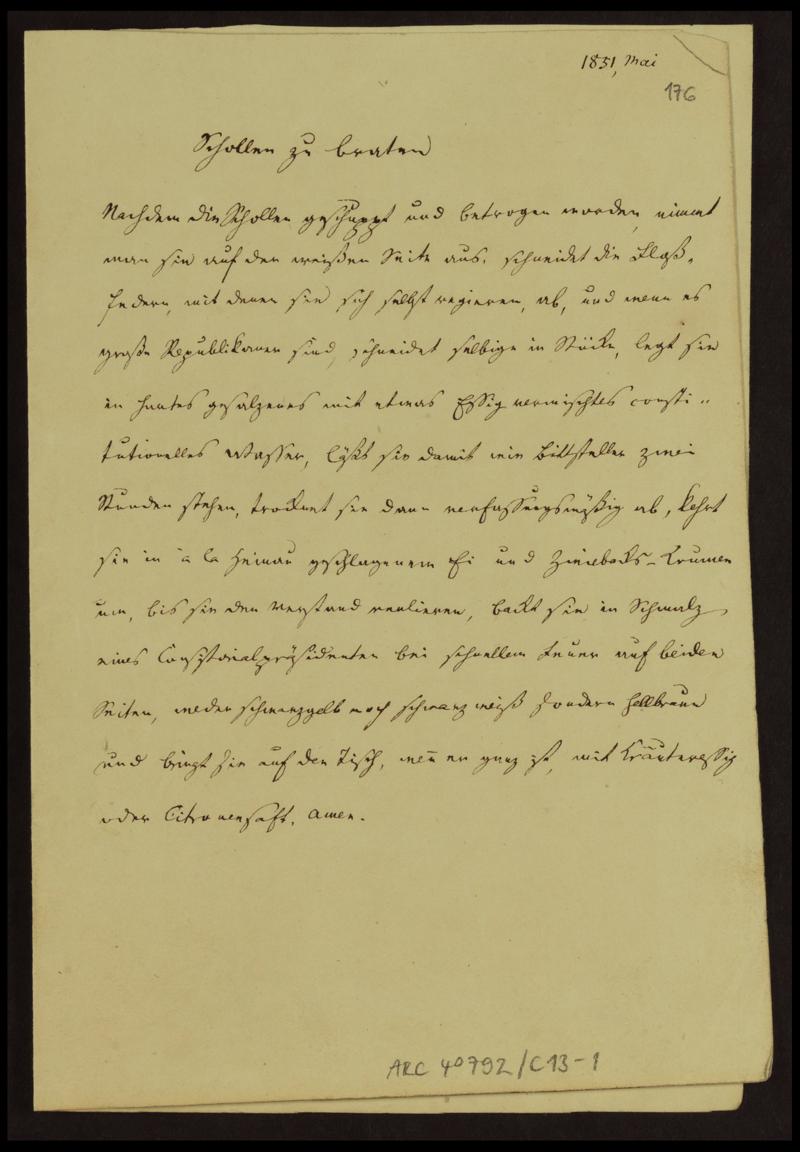 1851, Mai
176
Schollen zu braten
Nachdem die Schollen geschuppt und betrogen worden, nimmt
man sie auf der weißen Seite aus, schneidet die Floß-
federn, mit denen sie sich selbst regieren, ab, und wenn es
große Republikaner sind, schneidet selbige in Stücke, legt sie
in hartes gesalzenes mit etwas Essig vermischtes consti-
tutionelles Wasser, läßt sie damit wie Bittsteller zwei
Stunden stehen, trocknet sie dann verfassungsmäßig ab, kehrt
sie in à la geschlagenem Ei und Zwiebacks-Krumen
um, bis sie den Verstand verlieren, backt sie in Schmalz
eines Consistorialpräsidenten bei schnellem Feuer auf beiden
Seiten, weder schwarzgelb noch schwarzweiß sondern hellbraun
und bringt sie auf den Tisch, wen̄ er ganz ist, mit Kräuteressig
oder Citronensaft. Amen.
ARC 4°792/C13-1